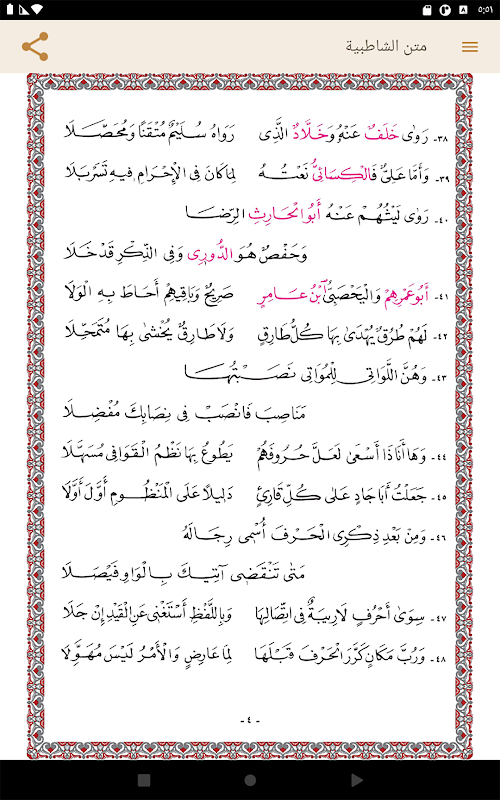 ٥:٥١
متن الشاطبية
٣٨- رَوَى خَلَفٌ عَنْهُ وَخَلَّادٌ الَّذِى رَوَاهُ سُلَيْمٌ مُتْقَنًا وَمُحَصَّلَا
٣٩- وَأَمَّا عَلِىٌّ فَالْكِسَائِىُّ نَعْتُهُ لِمَا كَانَ فِى الْإِحْرَامِ فِيهِ تَسَرْبَلَا
٤٠- رَوَى لَيْثُهُمْ عَنْهُ أَبُو الْحَارِثِ الرِّضَا
وَحَفْصٌ هُوَ الدُّورِى وَفِى الذِّكْرِ قَدْ خَلَا
٤١- أَبُو عَمْرِهِمْ وَالْيَحْصَبِىُّ ابْنُ عَامِرٍ صَرِيحٌ وَبَاقِيهِمْ أَحَاطَ بِهِ الْوَلَا
٤٢- لَهُمْ طُرُقٌ يُهْدَى بِهَا كُلُّ طَارِقٍ وَلَا طَارِقٌ يُخْشَى بِهَا مُتَمَحِّلَا
٤٣- وَهُنَّ اللَّوَاتِى لِلْمُوَاتِى نَصَبْتُهَا
مَنَاصِبَ فَانْصَبْ فِى نِصَابِكَ مُفْضِلَا
٤٤- وَهَا أَنَا ذَا أَسْعَى لَعَلَّ حُرُوفَهُمْ يَطُوعُ بِهَا نَظْمُ الْقَوَافِى مُسَهَّلَا
٤٥- جَعَلْتُ أَبَا جَادٍ عَلَى كُلِّ قَارِئٍ دَلِيلًا عَلَى الْمَنْظُومِ أَوَّلَ أَوَّلَا
٤٦- وَمِنْ بَعْدِ ذِكْرِى الْحَرْفَ أُسْمِى رِجَالَهُ
مَتَى تَنْقَضِى آتِيكَ بِالْوَاوِ فَيْصَلَا
٤٧- سِوَى أَحْرُفٍ لَا رِيبَةٌ فِى اتِّصَالِهَا وَبِاللَّفْظِ أَسْتَغْنِى عَنِ الْقَيْدِ إِنْ جَلَا
٤٨- وَرُبَّ مَكَانٍ كَرَّرَ الْحَرْفَ قَبْلَهَا لِمَا عَارِضٍ وَالْأَمْرُ لَيْسَ مُهَوِّلَا
- ٤ -